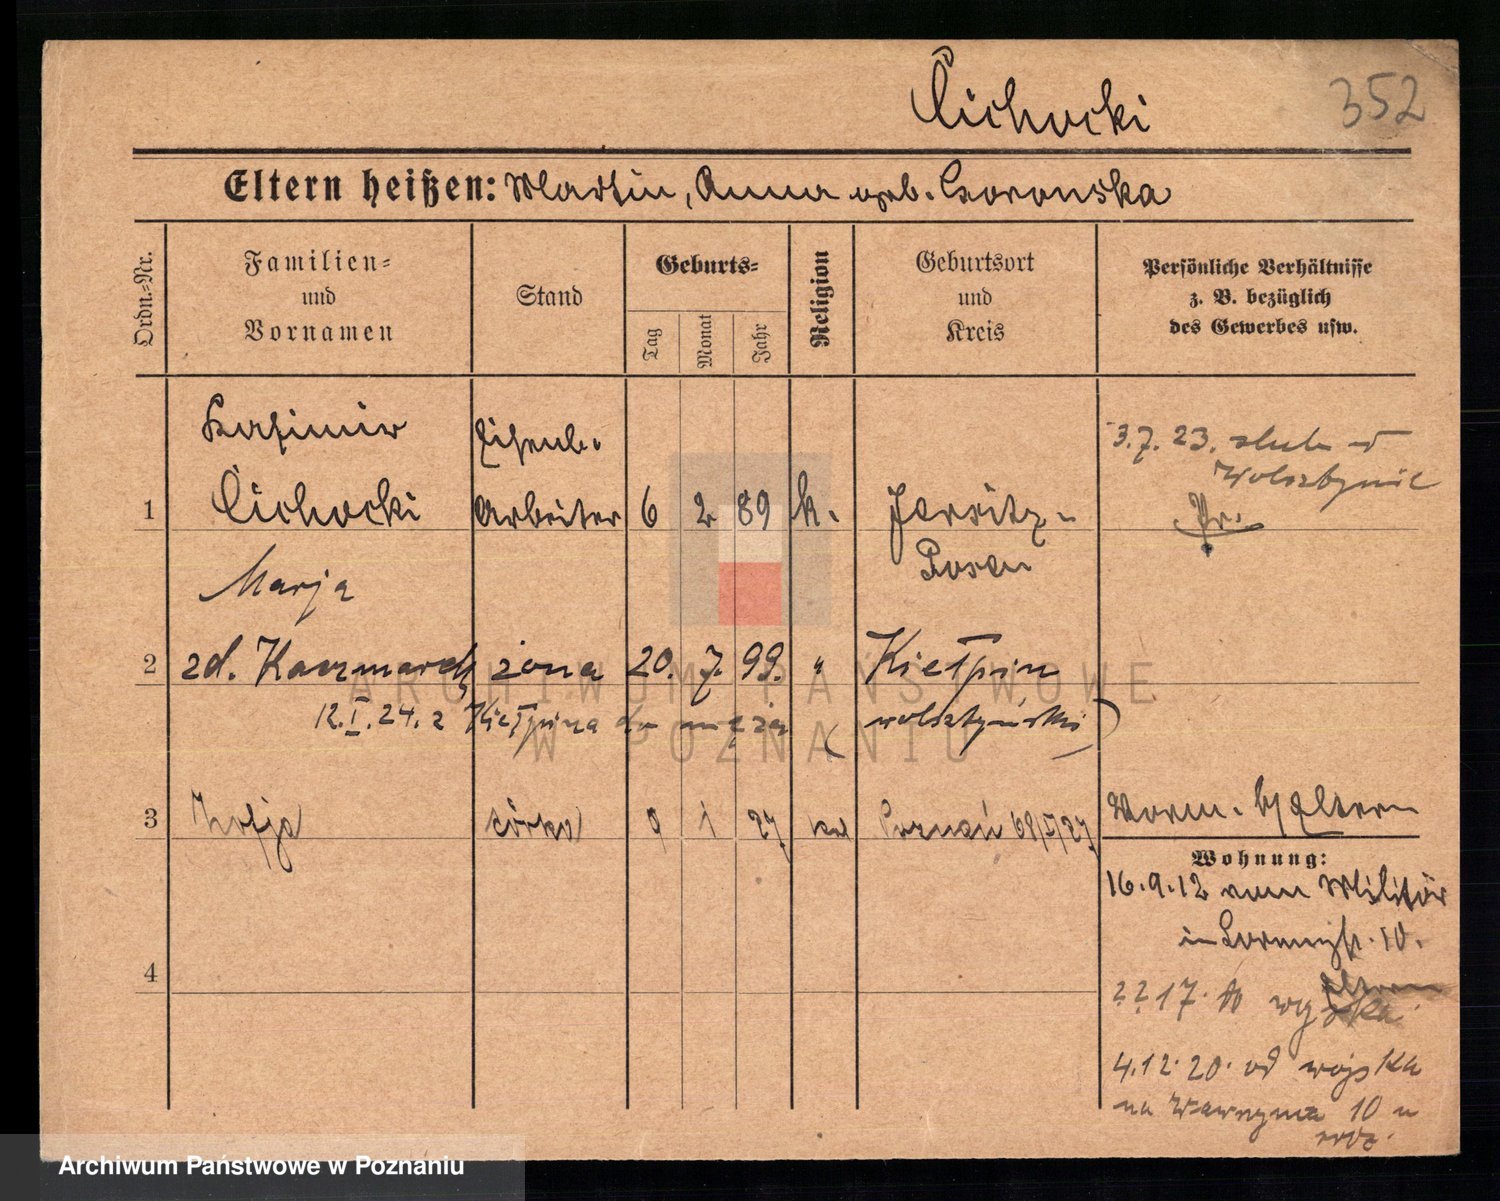 Cichocki 352
Eltern heißen: Martin, Anna geb. Czoronska
Ordn.-Nr.
Familien- und Vornamen
Stand
Geburts-
Tag Monat Jahr
Religion
Geburtsort und Kreis
Persönliche Verhältnisse z. B. bezüglich des Gewerbes usw.
Kasimir Eisenb. 3.7.23. ślub w
Wolsztynie
1 Cichocki Arbeiter 6 2 89 k. Jersitz-
Posen
Marja
2 zd. Kaczmarek żona 20. 7. 99. " Kiełpin
12.I.24. z Kiełpina do męża (wolsztyński)
3 Zofja córka 9 1 27 kat Poznań
Worm. b/ Eltern
Wohnung:
16.9.12 vom Militär
in Lorenzstr. 10.
4
Eltern
??17. do wojska
4.12.20. od wojska
na Wawrzyńca 10 u
rodz.
ARCHIWUM PAŃSTWOWE
W POZNANIU
Archiwum Państwowe w Poznaniu